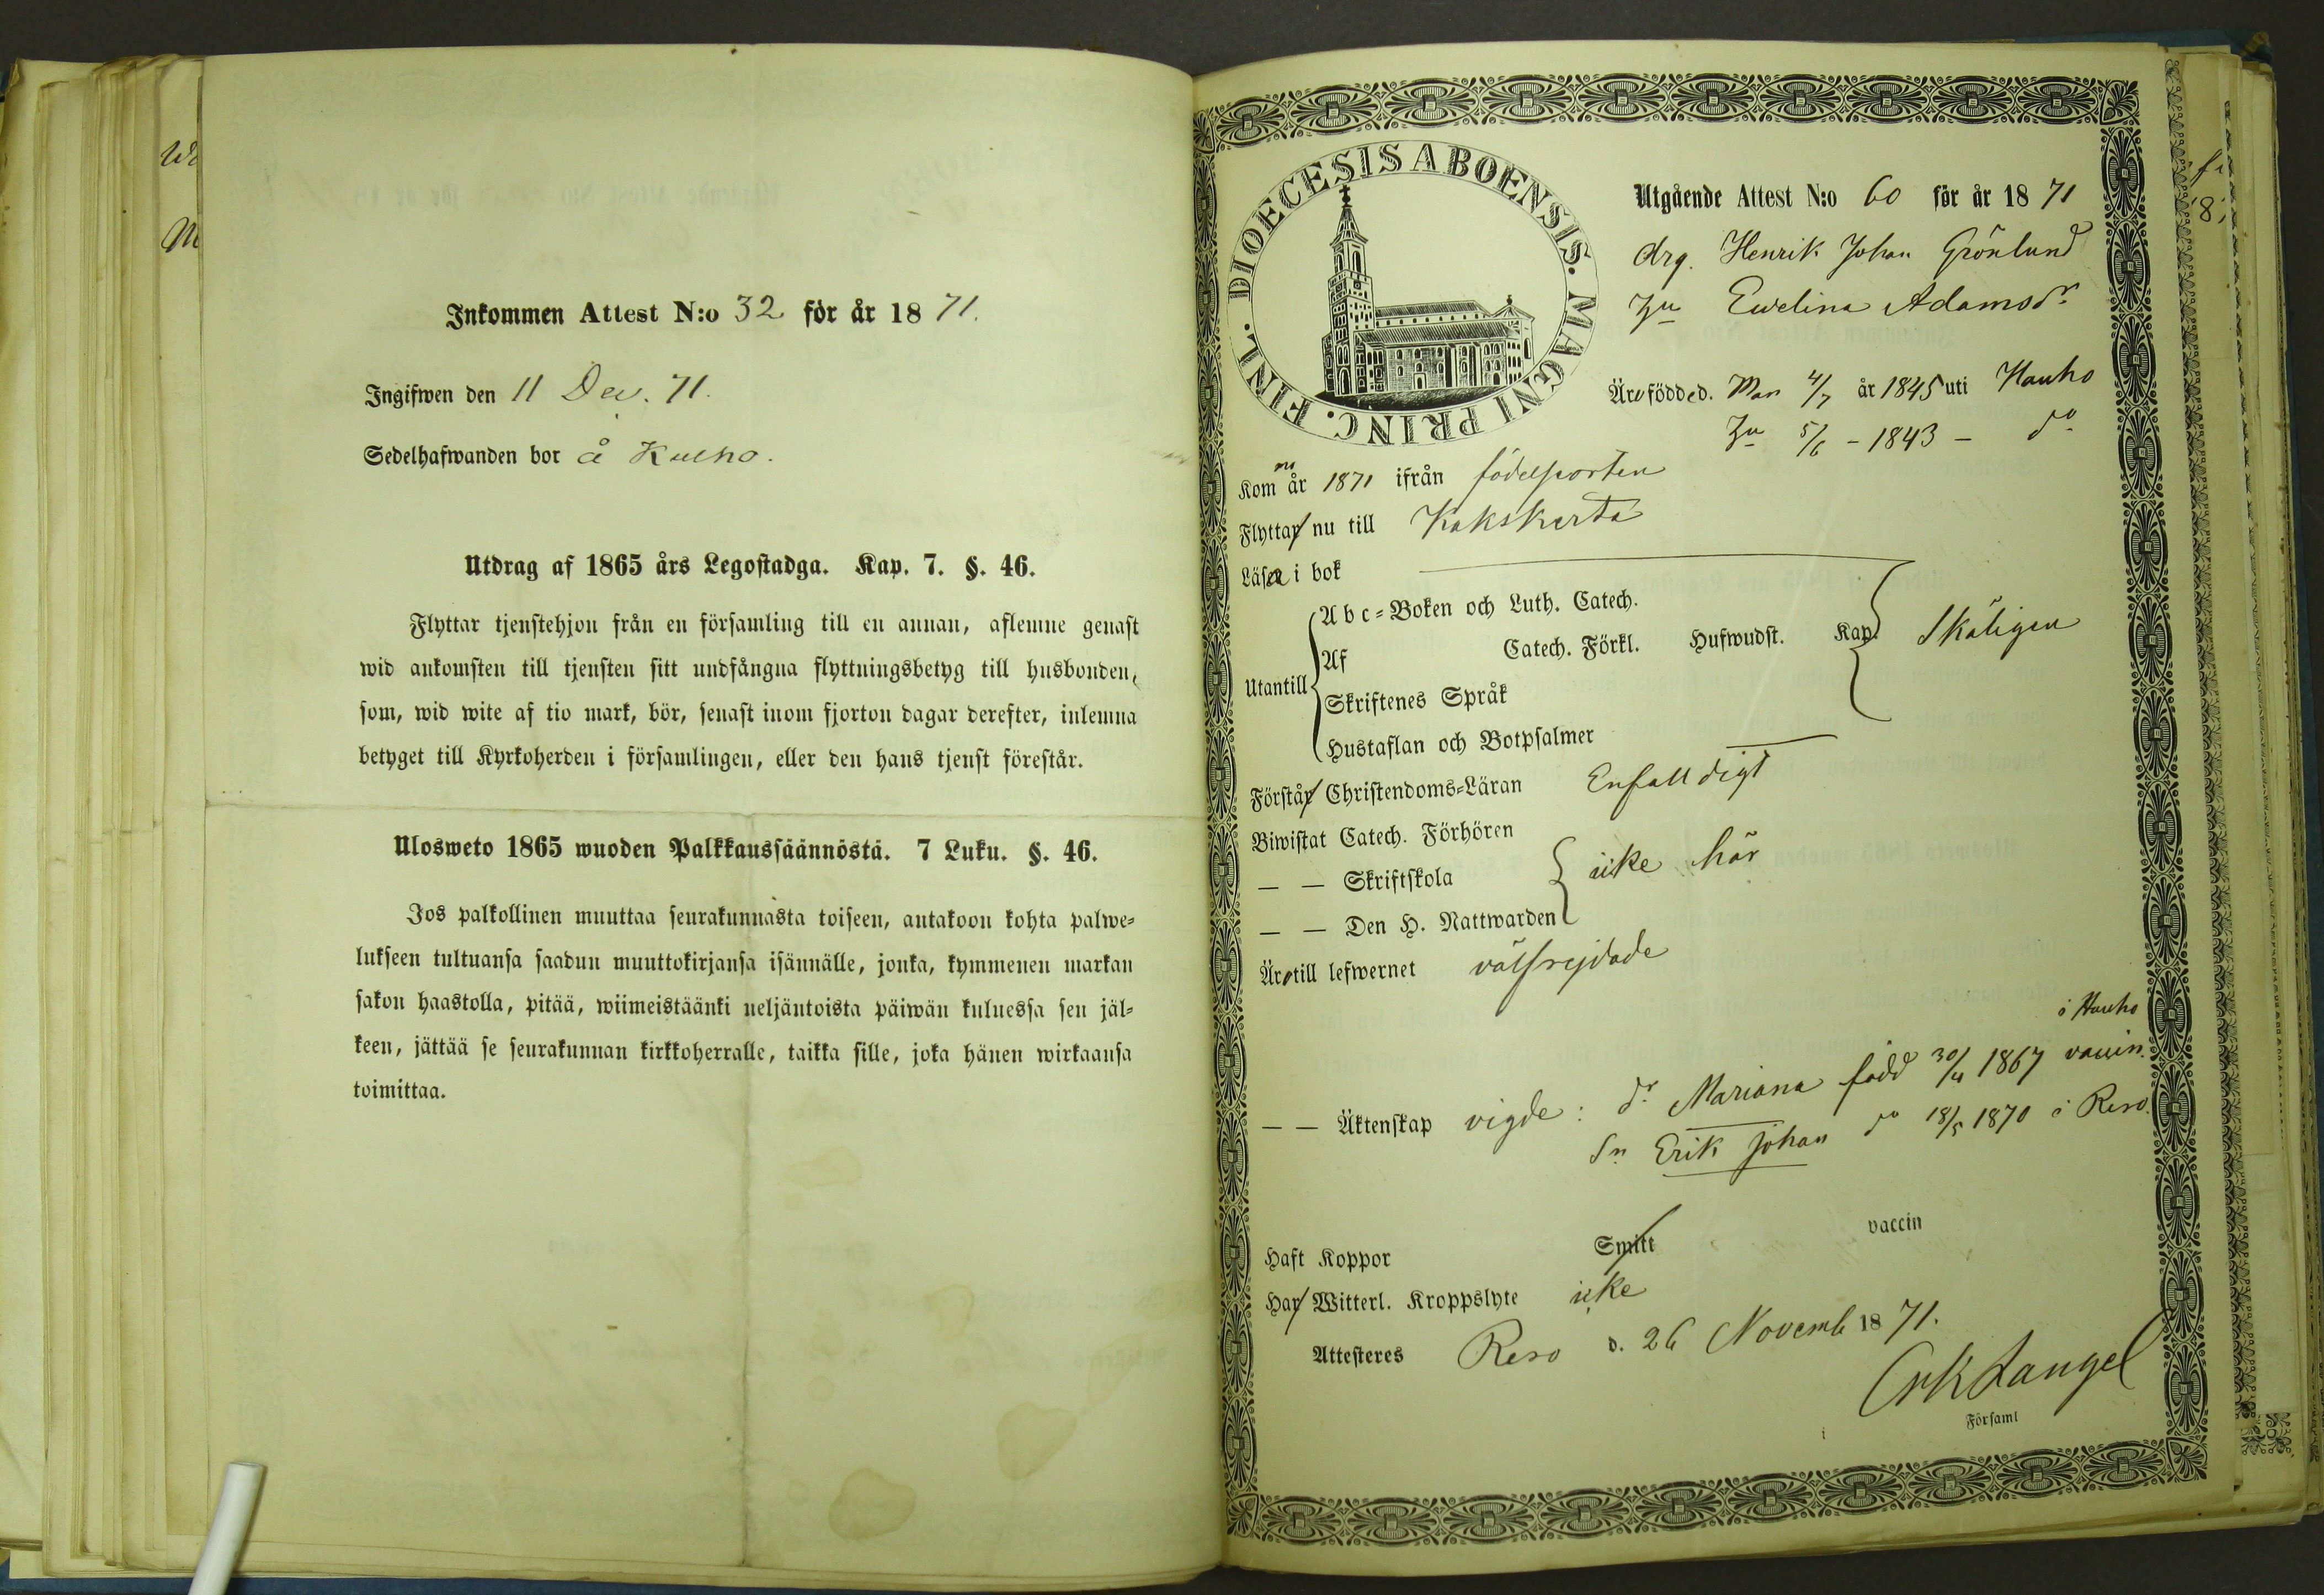 Inkommen Attest N:o 32 för år 18 71.
Ingifwen den 11 Dec. 71.
Sedelhafwanden bor å Kulho.
Utdrag af 1865 års Legostadga. Kap. 7. §. 46.
Flyttar tjenstehjon från en församling till en annan, aflemne genast
wid ankomsten till tjensten sitt undfångna flyttningsbetyg till husbonden,
som, wid wite af tio mark, bör, senast inom fjorton dagar derefter, inlemna
betyget till Kyrkoherden i församlingen, eller den hans tjenst förestår.
Ulosweto 1865 wuoden Palkkaussäännöstä. 7 Luku. §. 46.
Jos palkollinen muuttaa seurakunnasta toiseen, antakoon kohta palwe-
lukseen tultuansa saadun muuttokirjansa isännälle, jonka, kymmenen markan
sakon haastolla, pitää, wiimeistäänki neljäntoista päiwän kuluessa sen jäl-
keen, jättää se seurakunnan kirkkoherralle, taikka sille, joka hänen wirkaansa
toimittaa.
DIOECESIS ABOENSIS. MAGNI PRINC. FINL.
Utgående Attest N:o 60 för år 18 71
drg. Henrik Johan Grönlund
Hu Ewelina Adamsdr
Äro födde d. Man 4/7 år 1845 uti Hauho
Hu 5/6 - 1843 - do
Kommo år 1871 ifrån födelseorten
Flytta nu till Kakskerta
Läsa i bok
Abc-Boken och Luth. Catech.
Utantill Af Catech. Förkl. Hufwudst. Kap. Skäligen
Skriftenes Språk
Hustaflan och Botpsalmer
Förstå Christendoms-Läran Enfalldigt
Biwistat Catech. Förhören
— — Skriftskola icke här
— — Den H. Nattwarden
Äro till lefwernet välfrejdade
i Hauho
— — Äktenskap vigde: dr Mariana född 30/4 1867 vaccin.
Sn Erik Johan do 18/5 1870 i Reso.
Haft Koppor Smitt vaccin
Ha Witterl. Kroppslyte icke
Attesteres Reso d. 26 Novemb 18 71.
Langel
i Församl